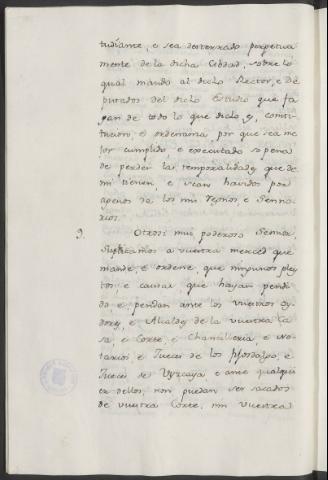 tudiante, e sea desterrado perpetua
mente de la dicha Cibdad, sobre lo
qual mando al dicho Rector, e Di
putados del dicho Estudio que fa
gan de todo lo que dicho es, consti
tucion, e ordenanza, por que sea me
jor cumplido, e executado so pena
de perder las temporalidades que de
mi tienen, e sean havidos por
agenos de los mis Regnos, e Senno
rios.
9. Otrosi mui poderoso Sennor,
suplicamos a vuestra merced que
mande, e ordene, que ningunos pley
tos, e causas que hayan pendi
do e pendan ante los vuestros Oy
dores, e Alcaldes de la vuestra Ca
sa, e Corte, e Chancilleria, e No
tarios, e Jueces de los fijosdalgo, e
Jueces de Vizcaya e ante qualqui
er dellos, non puedan ser sacados
de vuestra Corte, nin vuestra